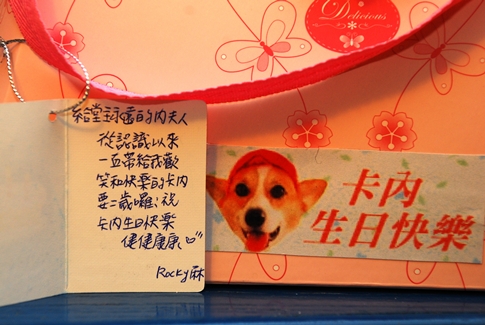 Delicious
給堂詠齒的內夫人
從認識以來
一直帶給我歡
笑和快樂的卡內
要三歲囉!祝
卡內生日快樂
健健康康
Rocky麻
卡內
生日快樂